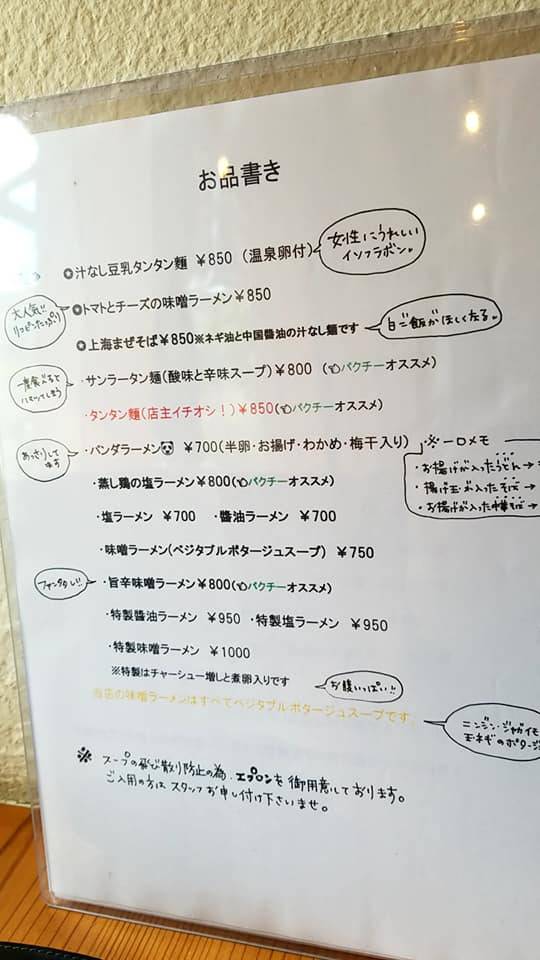 お品書き
女性にうれしい
イソフラボン。
◎汁なし豆乳タンタン麺 ￥850 (温泉卵付)
大人気！
リピーたっぷり
◎トマトとチーズの味噌ラーメン￥850
◎上海まぜそば￥850※ネギ油と中国醬油の汁なし麺です
白ご飯がほしくなる。
一度食べると
ハマってしまう
・サンラータン麺(酸味と辛味スープ)￥800 (パクチーオススメ)
・タンタン麺(店主イチオシ！)￥850(パクチーオススメ)
あっさりして
・パンダラーメン🐼 ￥700(半卵・お揚げ・わかめ・梅干入り)
※一口メモ
・お揚げが入ったうどん→
・揚げ玉が入ったそば→
・お揚げが入った中華そば→
・蒸し鶏の塩ラーメン￥800(パクチーオススメ)
・塩ラーメン ￥700 ・醬油ラーメン ￥700
・味噌ラーメン(ベジタブルポタージュスープ) ￥750
・旨辛味噌ラーメン￥800(パクチーオススメ)
・特製醬油ラーメン ￥950 ・特製塩ラーメン ￥950
・特製味噌ラーメン ￥1000
※特製はチャーシュー増しと煮卵入りです
お腹いっぱい!!
当店の味噌ラーメンはすべてベジタブルポタージュスープです。
ニンジン・ジャガイモ
玉ネギのポタージ
※ スープの飛び散り防止の為、エプロンを御用意しております。
ご入用の方はスタッフお申し付け下さいませ。